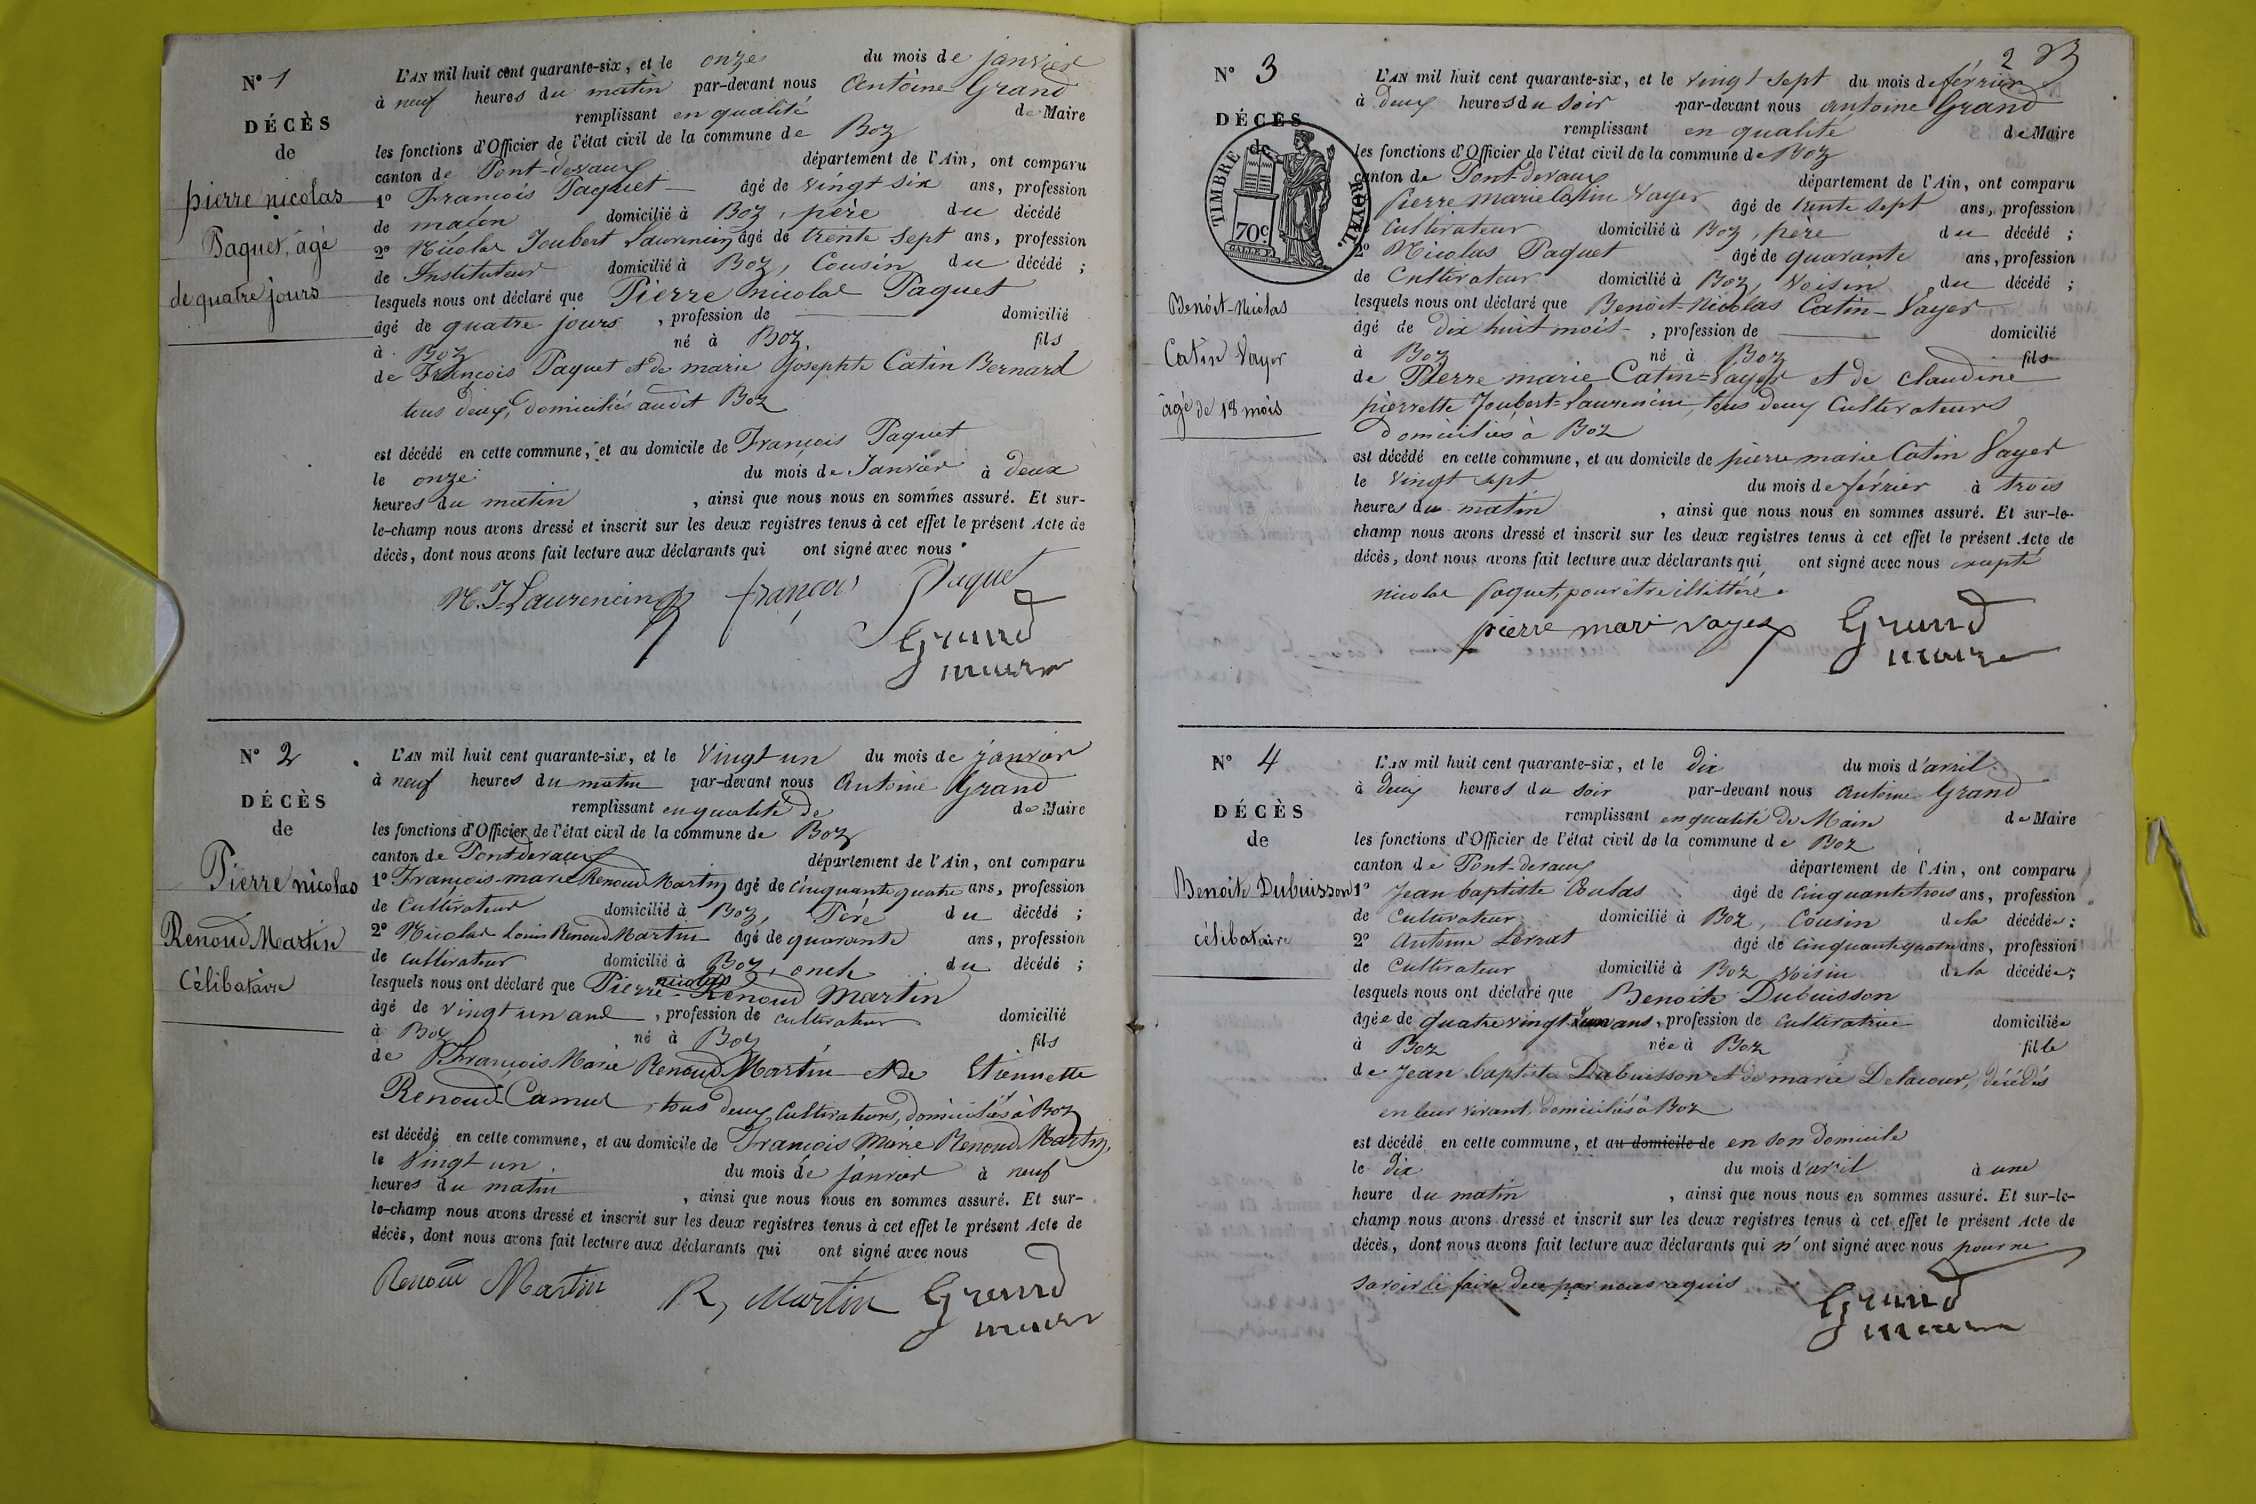 N° 1
DÉCÈS
de
pierre nicolas
Paquet, âgé
de quatre jours
L'AN mil huit cent quarante-six, et le onze du mois de janvier
à neuf heures du matin par-devant nous Antoine Grand
remplissant en qualité de Maire
les fonctions d'Officier de l'état civil de la commune de Boz
canton de Pont-devaux département de l'Ain, ont comparu
1° François Paquet âgé de vingt six ans, profession
de maçon domicilié à Boz, père du décédé
2° Nicolas Joubert Laurencin âgé de trente sept ans, profession
de Instituteur domicilié à Boz, Cousin du décédé ;
lesquels nous ont déclaré que Pierre nicolas Paquet
âgé de quatre jours, profession de domicilié
à Boz né à Boz fils
de François Paquet et de marie Josephte Catin Bernard
tous deux, domiciliés audit Boz
est décédé en cette commune, et au domicile de François Paquet
le onze du mois de Janvier à deux
heures du matin, ainsi que nous nous en sommes assuré. Et sur-
le-champ nous avons dressé et inscrit sur les deux registres tenus à cet effet le présent Acte de
décès, dont nous avons fait lecture aux déclarants qui ont signé avec nous
N. J. Laurencin françois Paquet
Grand
maire
N° 2
DÉCÈS
de
Pierre nicolas
Renoud Martin
Célibataire
L'AN mil huit cent quarante-six, et le vingt un du mois de janvier
à neuf heures du matin par-devant nous Antoine Grand
remplissant en qualité de de Maire
les fonctions d'Officier de l'état civil de la commune de Boz
canton de Pontdevaux département de l'Ain, ont comparu
1° François-marie Renoud Martin âgé de cinquante quatre ans, profession
de Cultivateur domicilié à Boz, Père du décédé ;
2° Nicolas Louis Renoud Martin âgé de quarante ans, profession
de cultivateur domicilié à Boz, oncle du décédé ;
nicolas
lesquels nous ont déclaré que Pierre - Renoud Martin
âgé de vingt un ans, profession de cultivateur domicilié
à Boz né à Boz fils
de François Marie Renoud Martin et de Etiennette
Renoud-Camus, tous deux Cultivateurs, domiciliés à Boz
est décédé en cette commune, et au domicile de François Marie Renoud Martin,
le Vingt un du mois de janvier à neuf
heures du matin, ainsi que nous nous en sommes assuré. Et sur-
le-champ nous avons dressé et inscrit sur les deux registres tenus à cet effet le présent Acte de
décès, dont nous avons fait lecture aux déclarants qui ont signé avec nous
Renoud Martin R, Martin Grand
maire
2
N° 3
DÉCÈS
de
TIMBRE ROYAL
70c
Benoit-Nicolas
Catin Vayer
âgé de 18 mois
L'AN mil huit cent quarante-six, et le vingt sept du mois de février
à deux heures du soir par-devant nous antoine Grand
remplissant en qualité de Maire
les fonctions d'Officier de l'état civil de la commune de Boz
canton de Pont-devaux département de l'Ain, ont comparu
Pierre marie Catin Vayer âgé de trente sept ans, profession
Cultivateur domicilié à Boz, père du décédé ;
2° Nicolas Paquet âgé de quarante ans, profession
de Cultivateur domicilié à Boz, Voisin du décédé ;
lesquels nous ont déclaré que Benoit-Nicolas Catin-Vayer
âgé de dix huit mois, profession de domicilié
à Boz né à Boz fils
de Pierre marie Catin-Vayer et de claudine
pierrette Joubert-Laurencin, tous deux Cultivateurs
domiciliés à Boz
est décédé en cette commune, et au domicile de pierre marie Catin Vayer
le Vingt sept du mois de février à trois
heures du matin, ainsi que nous nous en sommes assuré. Et sur-le-
champ nous avons dressé et inscrit sur les deux registres tenus à cet effet le présent Acte de
décès, dont nous avons fait lecture aux déclarants qui ont signé avec nous excepté
nicolas paquet, pour être illettéré.
pierre mari vayer Grand
maire
N° 4
DÉCÈS
de
Benoite Dubuisson
célibataire
L'AN mil huit cent quarante-six, et le dix du mois d'avril
à deux heures du soir par-devant nous Antoine Grand
remplissant en qualité de Maire de Maire
les fonctions d'Officier de l'état civil de la commune de Boz
canton de Pont-devaux département de l'Ain, ont comparu
1° Jean baptiste âgé de cinquante trois ans, profession
de Cultivateur domicilié à Boz, Cousin de la décédée ;
2° Antoine âgé de cinquante quatre ans, profession
de Cultivateur domicilié à Boz voisin de la décédée ;
lesquels nous ont déclaré que Benoite Dubuisson
âgée de quatre vingt un ans, profession de cultivatrice domiciliée
à Boz née à Boz fille
de Jean baptiste Dubuisson et de marie Delacour, décédés
en leur vivant, domiciliés à Boz
est décédé en cette commune, et au domicile de en son domicile
le dix du mois d'avril à une
heure du matin, ainsi que nous nous en sommes assuré. Et sur-le-
champ nous avons dressé et inscrit sur les deux registres tenus à cet effet le présent Acte de
décès, dont nous avons fait lecture aux déclarants qui n'ont signé avec nous pour ne
savoir le faire dece par nous requis
Grand
maire